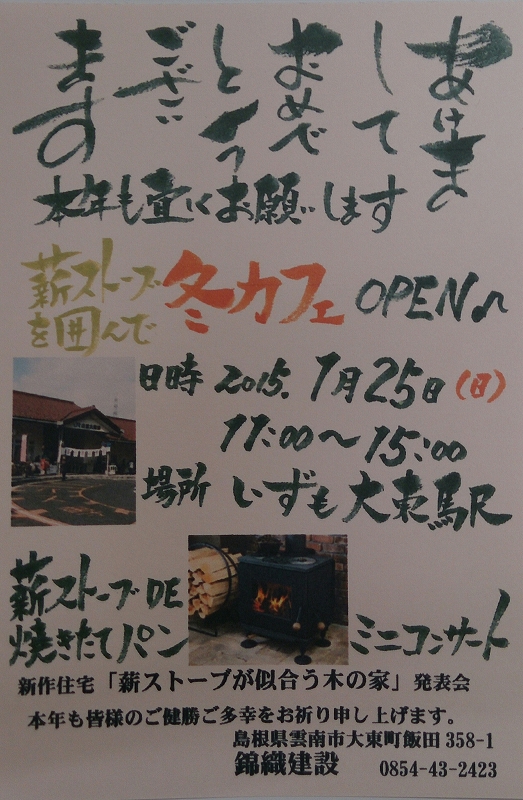 あけまして
おめでとう
ございます
本年も宜しくお願いします
薪ストーブを囲んで 冬カフェ OPEN♪
日時 2015. 1月25日(日)
11:00〜15:00
場所 いずも大東駅
薪ストーブDE
焼きたてパン
ミニコンサート
新作住宅「薪ストーブが似合う木の家」発表会
本年も皆様のご健勝ご多幸をお祈り申し上げます。
島根県雲南市大東町飯田358-1
錦織建設 0854-43-2423